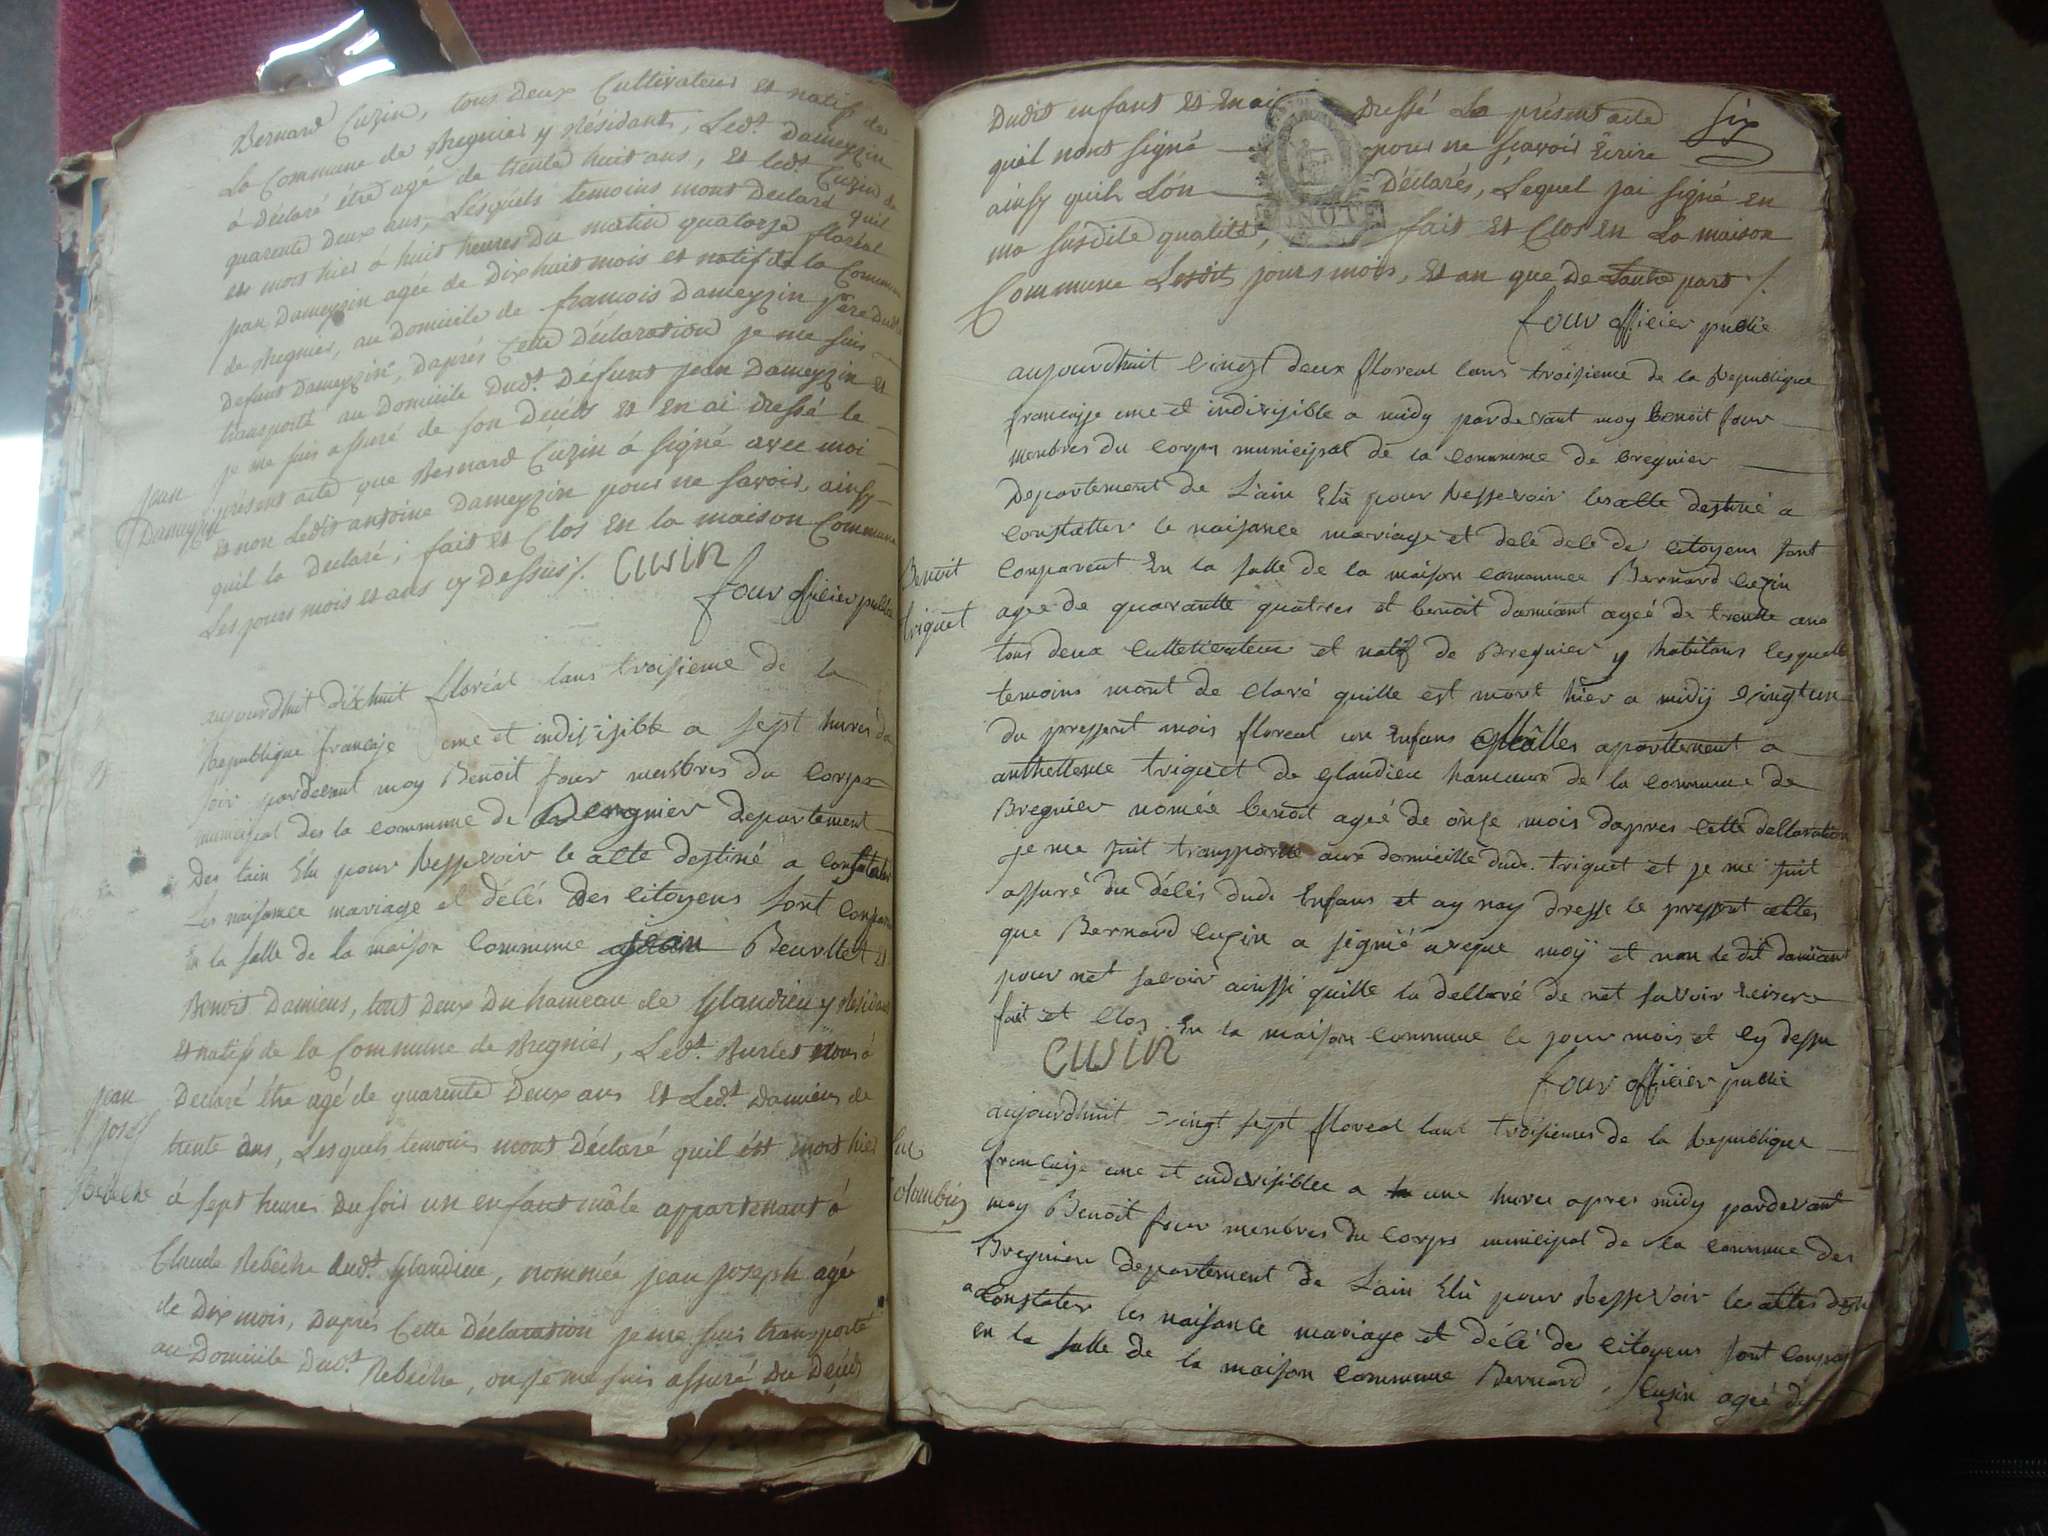 Bernard Cuzin, tous deux Cultivateurs et natifs de
La Commune de Bregnier y Résidants, Ledt. Dameyzin
à déclaré être agé de trente huit ans, et ledt. Cuzin de
quarente deux ans, Lesquels temoins mont Déclaré quil
est mort hier à huit heures du matin quatorze floréal
jean Dameyzin agée de Dix huit mois et natif de la Commune
de Bregnier, au domicile de francois Dameyzin père dudt
Defunt Dameyzin, Daprés Cette Déclaration je me suis
transporté au Domicile Dudt. Défunt jean Dameyzin et
je me suis assuré de son Décès et en ai dressé le
jean
Dameyzin
présent acte que Bernard Cuzin à signé avec moi
et non Ledit antoine Dameyzin pour ne savoir, ainsy
quil la Declaré, fait et Clos en la maison Commune
Les jours mois et ans cy Dessus /. Cusin
four officier public
aujourdhuit dixhuit floréal lans troisieme de la
Republique francise eme et indisisible a sept hures du
soir pardevant moy Benoit four menbres du Corps
municipal des la commune de Bregnier departement
Des lain Elu pour Ressevoir le alte destiné a Constater
Les naisance mariage et délés des citoyens sont Conparu
En la salle de la maison Commune jean Beurllet et
Benoit Damiens, tout deux Du hameau de Glandieu y Résidant
et natifs de la Commune de Bregnier, Ledt. Burlet nous à
Declaré être agé de quarente Deux ans et Ledt. Damiens de
jean
jose
Rebeche
trente ans, Lesquels temoins mont Déclaré quil est mort hier
à sept heures du soir un enfant mâle appartenant à
Claude Rebêche dudt. Glandieu, nommée jean joseph agée
de Dix mois, Daprés Cette Déclaration je me suis transporté
au Domicile Dudt. Rebêche, ou je me suis assuré Du Décès
Dudit enfant et en ai dressé Le présent acte
six
quil nont signé pour ne sçavoir Ecrire
ainsy quils Lón Déclarés, Lequel jai signé en
ma susdite qualité, fait et Clos en La maison
Commune Lesdit jours mois, et an que de Lautre part /.
four officier public
aujourdhuit vingt deux floreal lans troisieme de la Republique
francaisse eme et indivisible a midy pardevant moy benoit four
menbres du Corps municipal de la commune de bregnier
Departement de L'ain Elu pour Ressevoir les alte destiné a
Constatter le naisance mariage et dele dele de citoyens sont
Benoit
triquet
Conparent En la salle de la maison commune Bernard Cuzin
agee de quarantte quatres et benoit damiant ageé de trentte ans
tous deux Culteticateur et natif de Bregnier y habitans lesquelle
temoins mont de claré quille est mort hier a midij vingt un
du pressent mois floreal un Enfans malles aparttenent a
anthellenne triquet de glandieu hameaux de la commune de
Bregnier nomée benoit ageé de onse mois dapres cette dellaration
je me suit transporté aux domicille dude. triquet et je me suit
assuré du délés dude Enfans et ay nay dresse le pressent altes
que Bernard Cuzin a signié aveque moÿ et non le dit damiant
pour net savoir ainssi quille la dellaré de net savoir Ecirere
fait et Clos En la maison commune le jour mois et Cy dessu
Cusin
four officier public
aujourdhuit vingt sept floreal lant troisiemes de la Republique
francaise eme et indivisiblee a une huree apres midy pardevant
Colombier
moy Benoit four menbres du Corps municipal de la commune des
Bregnier departement de L'ain Elu pour Ressevoir les altes destiné
a Constater les naisance mariage et délé des citoyens sont Conparu
en la salle de la maison commune Bernard Cuzin ageé de